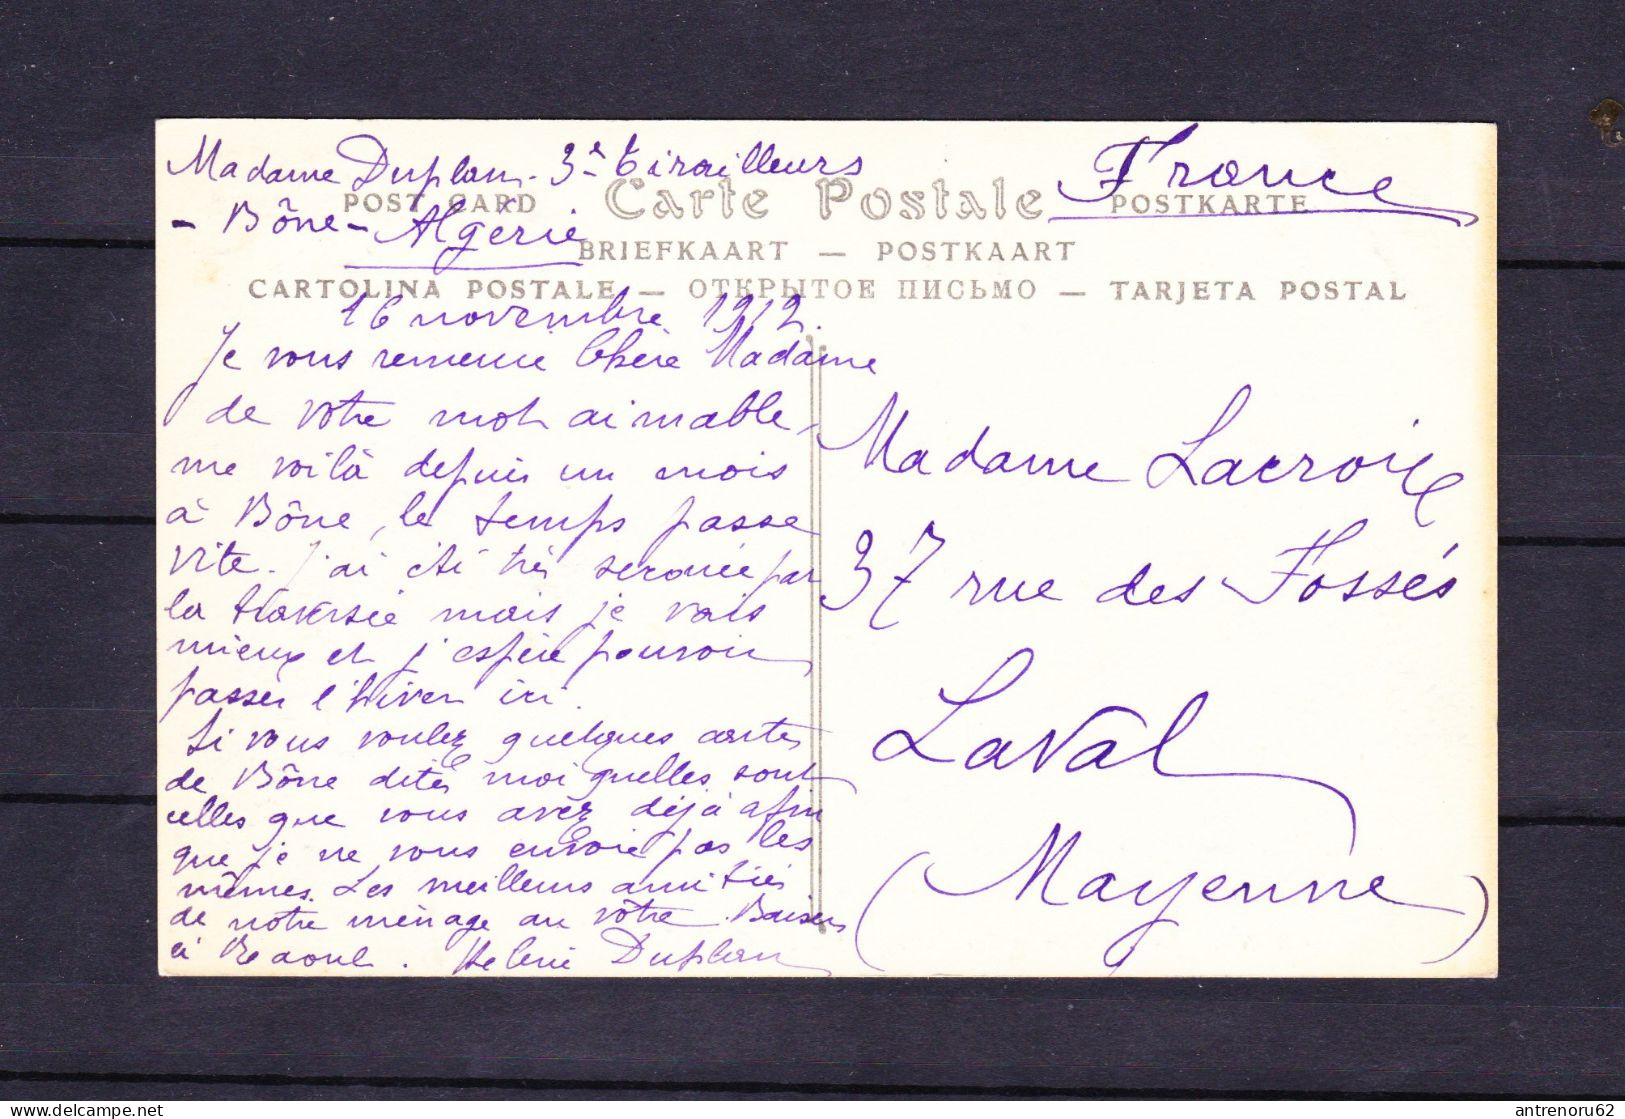 Madame Duplan - 3e Tirailleurs
- Bône - Algérie
France
POST CARD Carte Postale POSTKARTE
BRIEFKAART — POSTKAART
CARTOLINA POSTALE — ОТКРЫТОЕ ПИСЬМО — TARJETA POSTAL
16 novembre 1912.
Je vous remercie Chère Madame
de votre mot aimable,
me voilà depuis un mois
à Bône, le temps passe
vite. J'ai été très secouée par
la traversée mais je vais
mieux et j'espère pouvoir
passer l'hiver ici.
Si vous voulez quelques cartes
de Bône dites moi quelles sont
celles que vous avez déjà afin
que je ne vous envoie pas les
mêmes. Les meilleures amitiés
de notre ménage au vôtre. Baisers
à Raoul. Hélène Duplan
Madame Lacroix
37 rue des Fossés
Laval
(Mayenne)
delcampe.net
antrenoru62